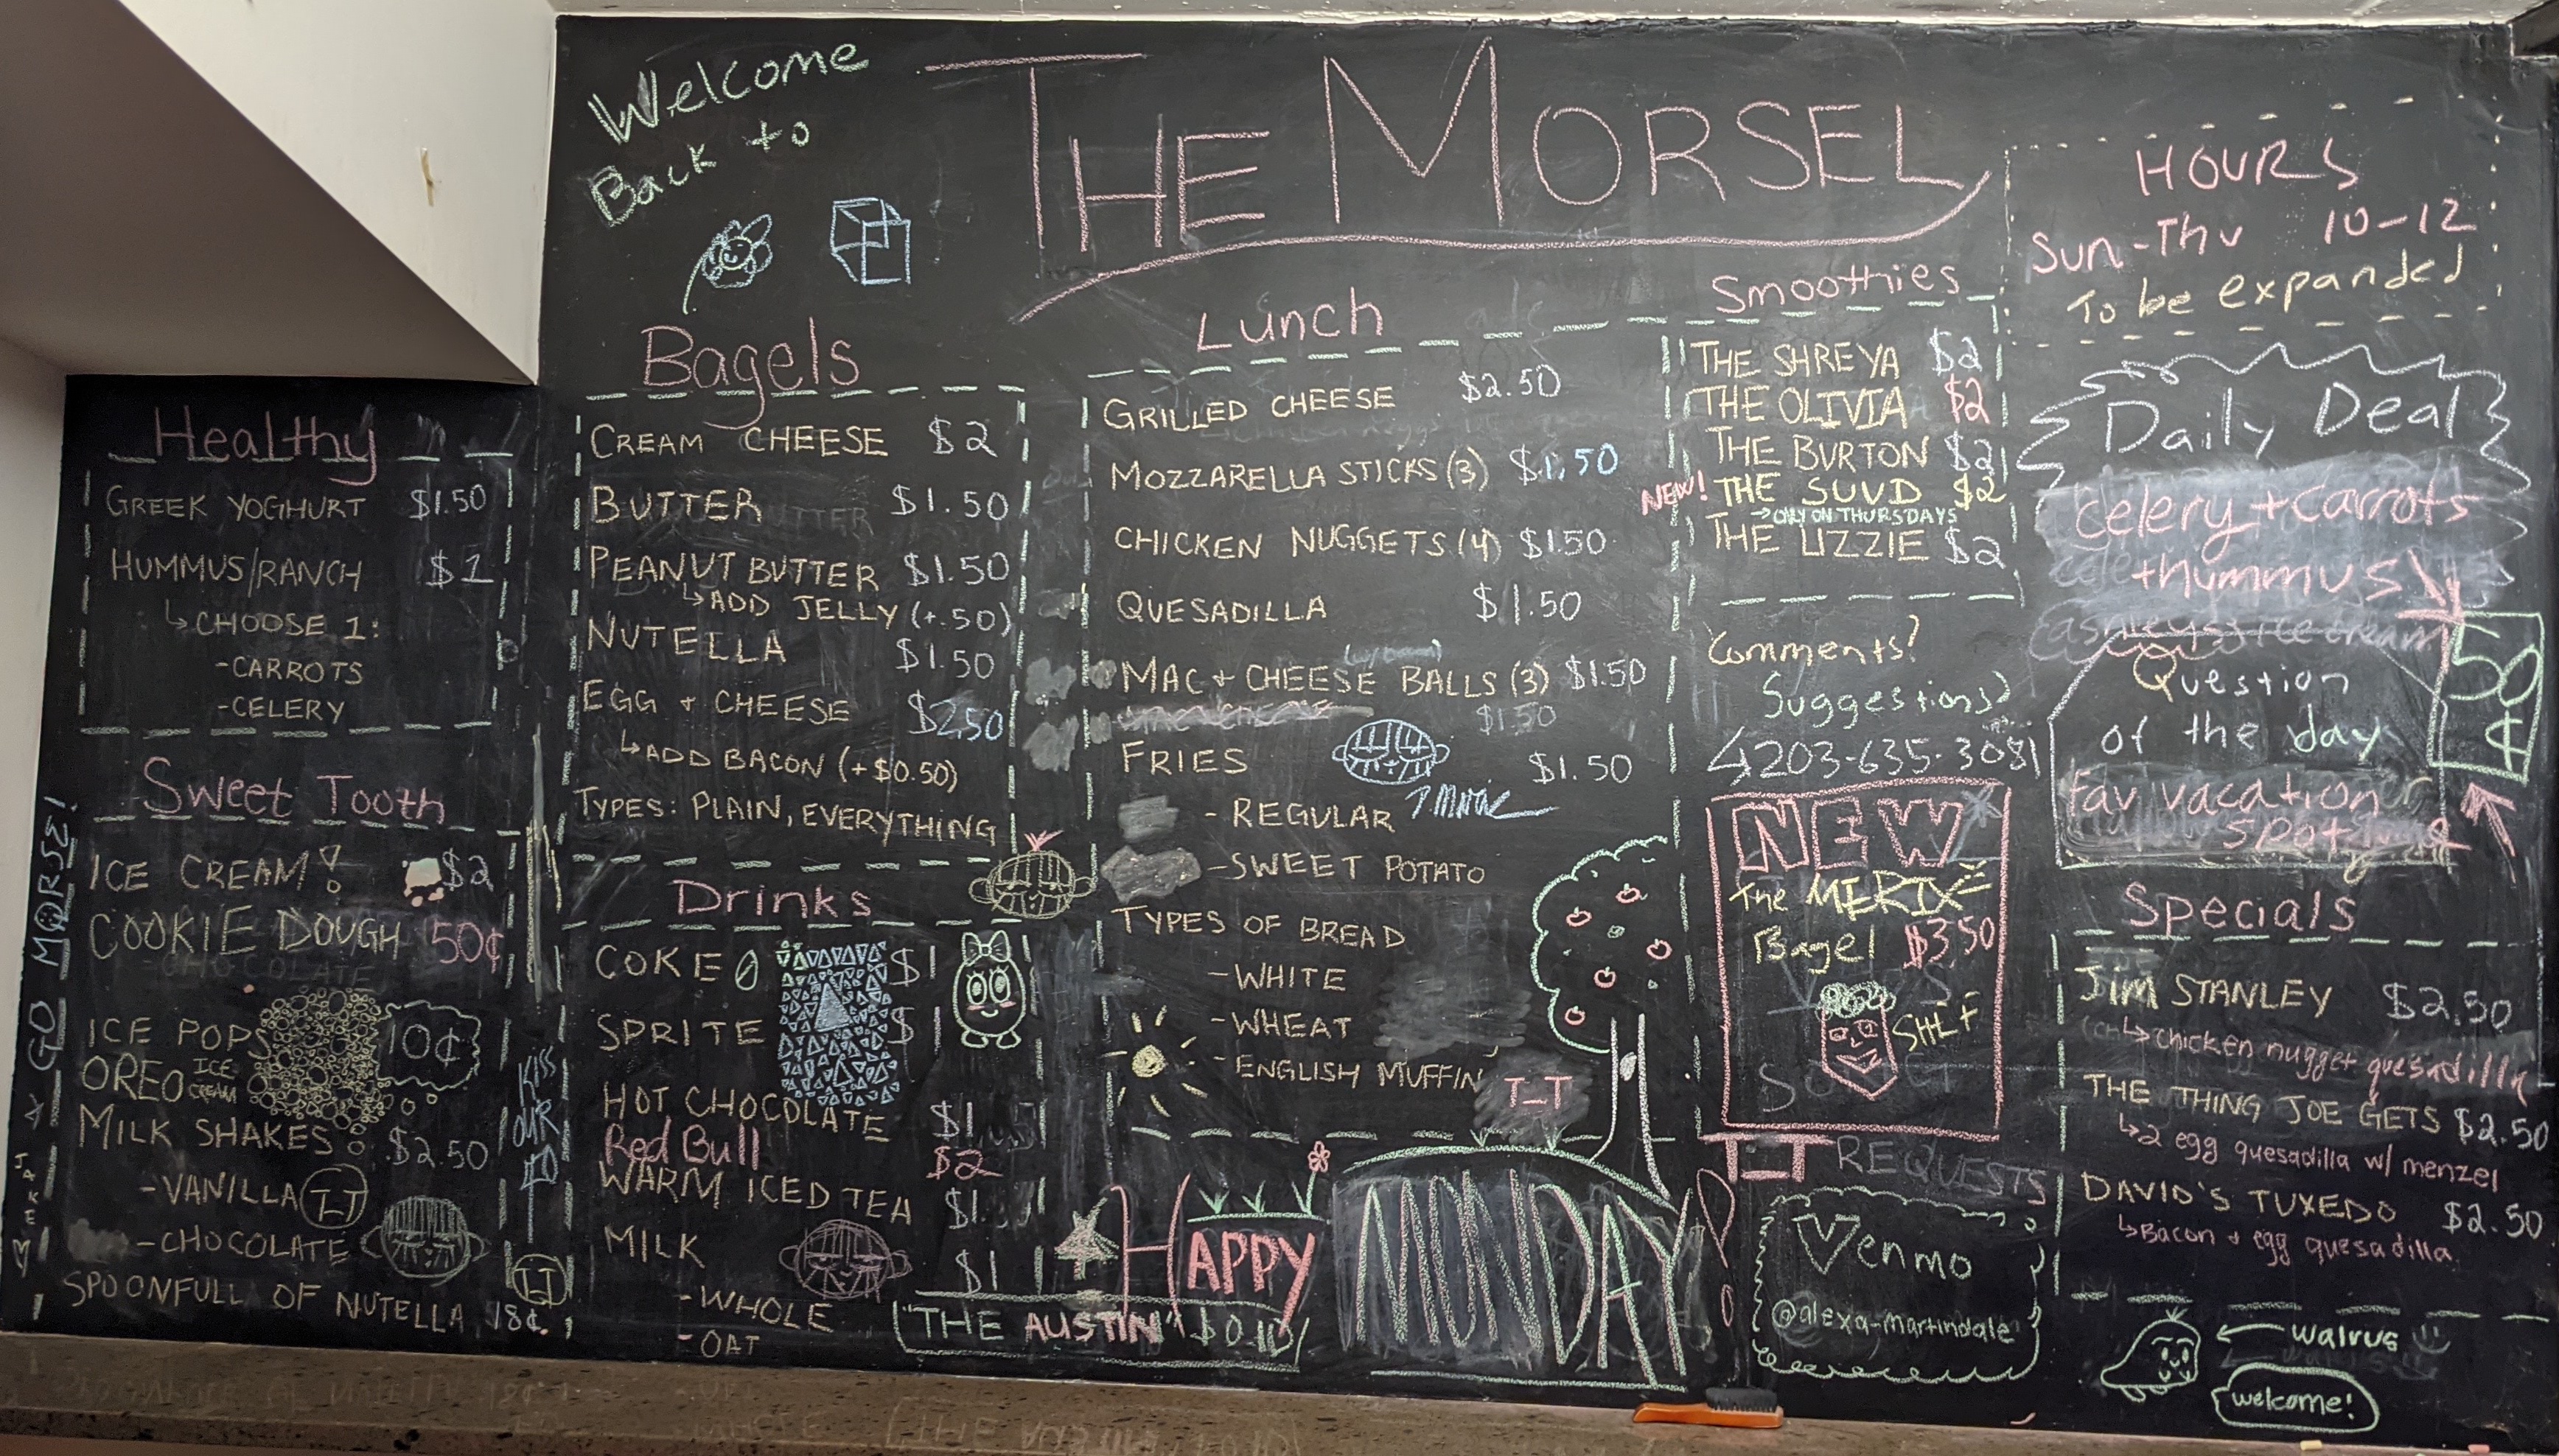 Welcome
Back to
THE MORSEL
HOURS
Sun-Thu 10-12
To be expanded
Healthy
GREEK YOGHURT $1.50
HUMMUS/RANCH $1
↳CHOOSE 1:
-CARROTS
-CELERY
Sweet Tooth
ICE CREAM! $2
COOKIE DOUGH 50¢
ICE POPS 10¢
OREO ICE CREAM
MILK SHAKES $2.50
-VANILLA
-CHOCOLATE
SPOONFULL OF NUTELLA 18¢
GO MORSE!
JAKE
KISS
OUR
Bagels
CREAM CHEESE $2
BUTTER $1.50
PEANUT BUTTER $1.50
↳ADD JELLY (+.50)
NUTELLA $1.50
EGG + CHEESE $2.50
↳ADD BACON (+$0.50)
TYPES: PLAIN, EVERYTHING
Drinks
COKE 0 $1
SPRITE $1
HOT CHOCOLATE $1
Red Bull $2
WARM ICED TEA $1
MILK $1
-WHOLE
-OAT
"THE AUSTIN" $0.10
Lunch
GRILLED CHEESE $2.50
MOZZARELLA STICKS (3) $1.50
CHICKEN NUGGETS (4) $1.50
QUESADILLA $1.50
(w/ bacon)
MAC + CHEESE BALLS (3) $1.50
$1.50
FRIES $1.50
-REGULAR
-SWEET POTATO
TYPES OF BREAD
-WHITE
-WHEAT
-ENGLISH MUFFIN
HAPPY MONDAY!
Smoothies
THE SHREYA $2
THE OLIVIA $2
THE BURTON $2
NEW! THE SUVD $2
→ONLY ON THURSDAYS
THE LIZZIE $2
Comments?
Suggestions?
↳203-635-3081
NEW
The MERIX
Bagel $3.50
REQUESTS
Venmo
@alexa-martindale
Daily Deal
celery + carrots
+hummus
50¢
Question
of the day
Fav vacation
spot
Specials
Jim STANLEY $2.50
↳chicken nugget quesadilla
THE THING JOE GETS $2.50
↳2 egg quesadilla w/ menzel
DAVID'S TUXEDO $2.50
↳Bacon + egg quesadilla
walrus
welcome!